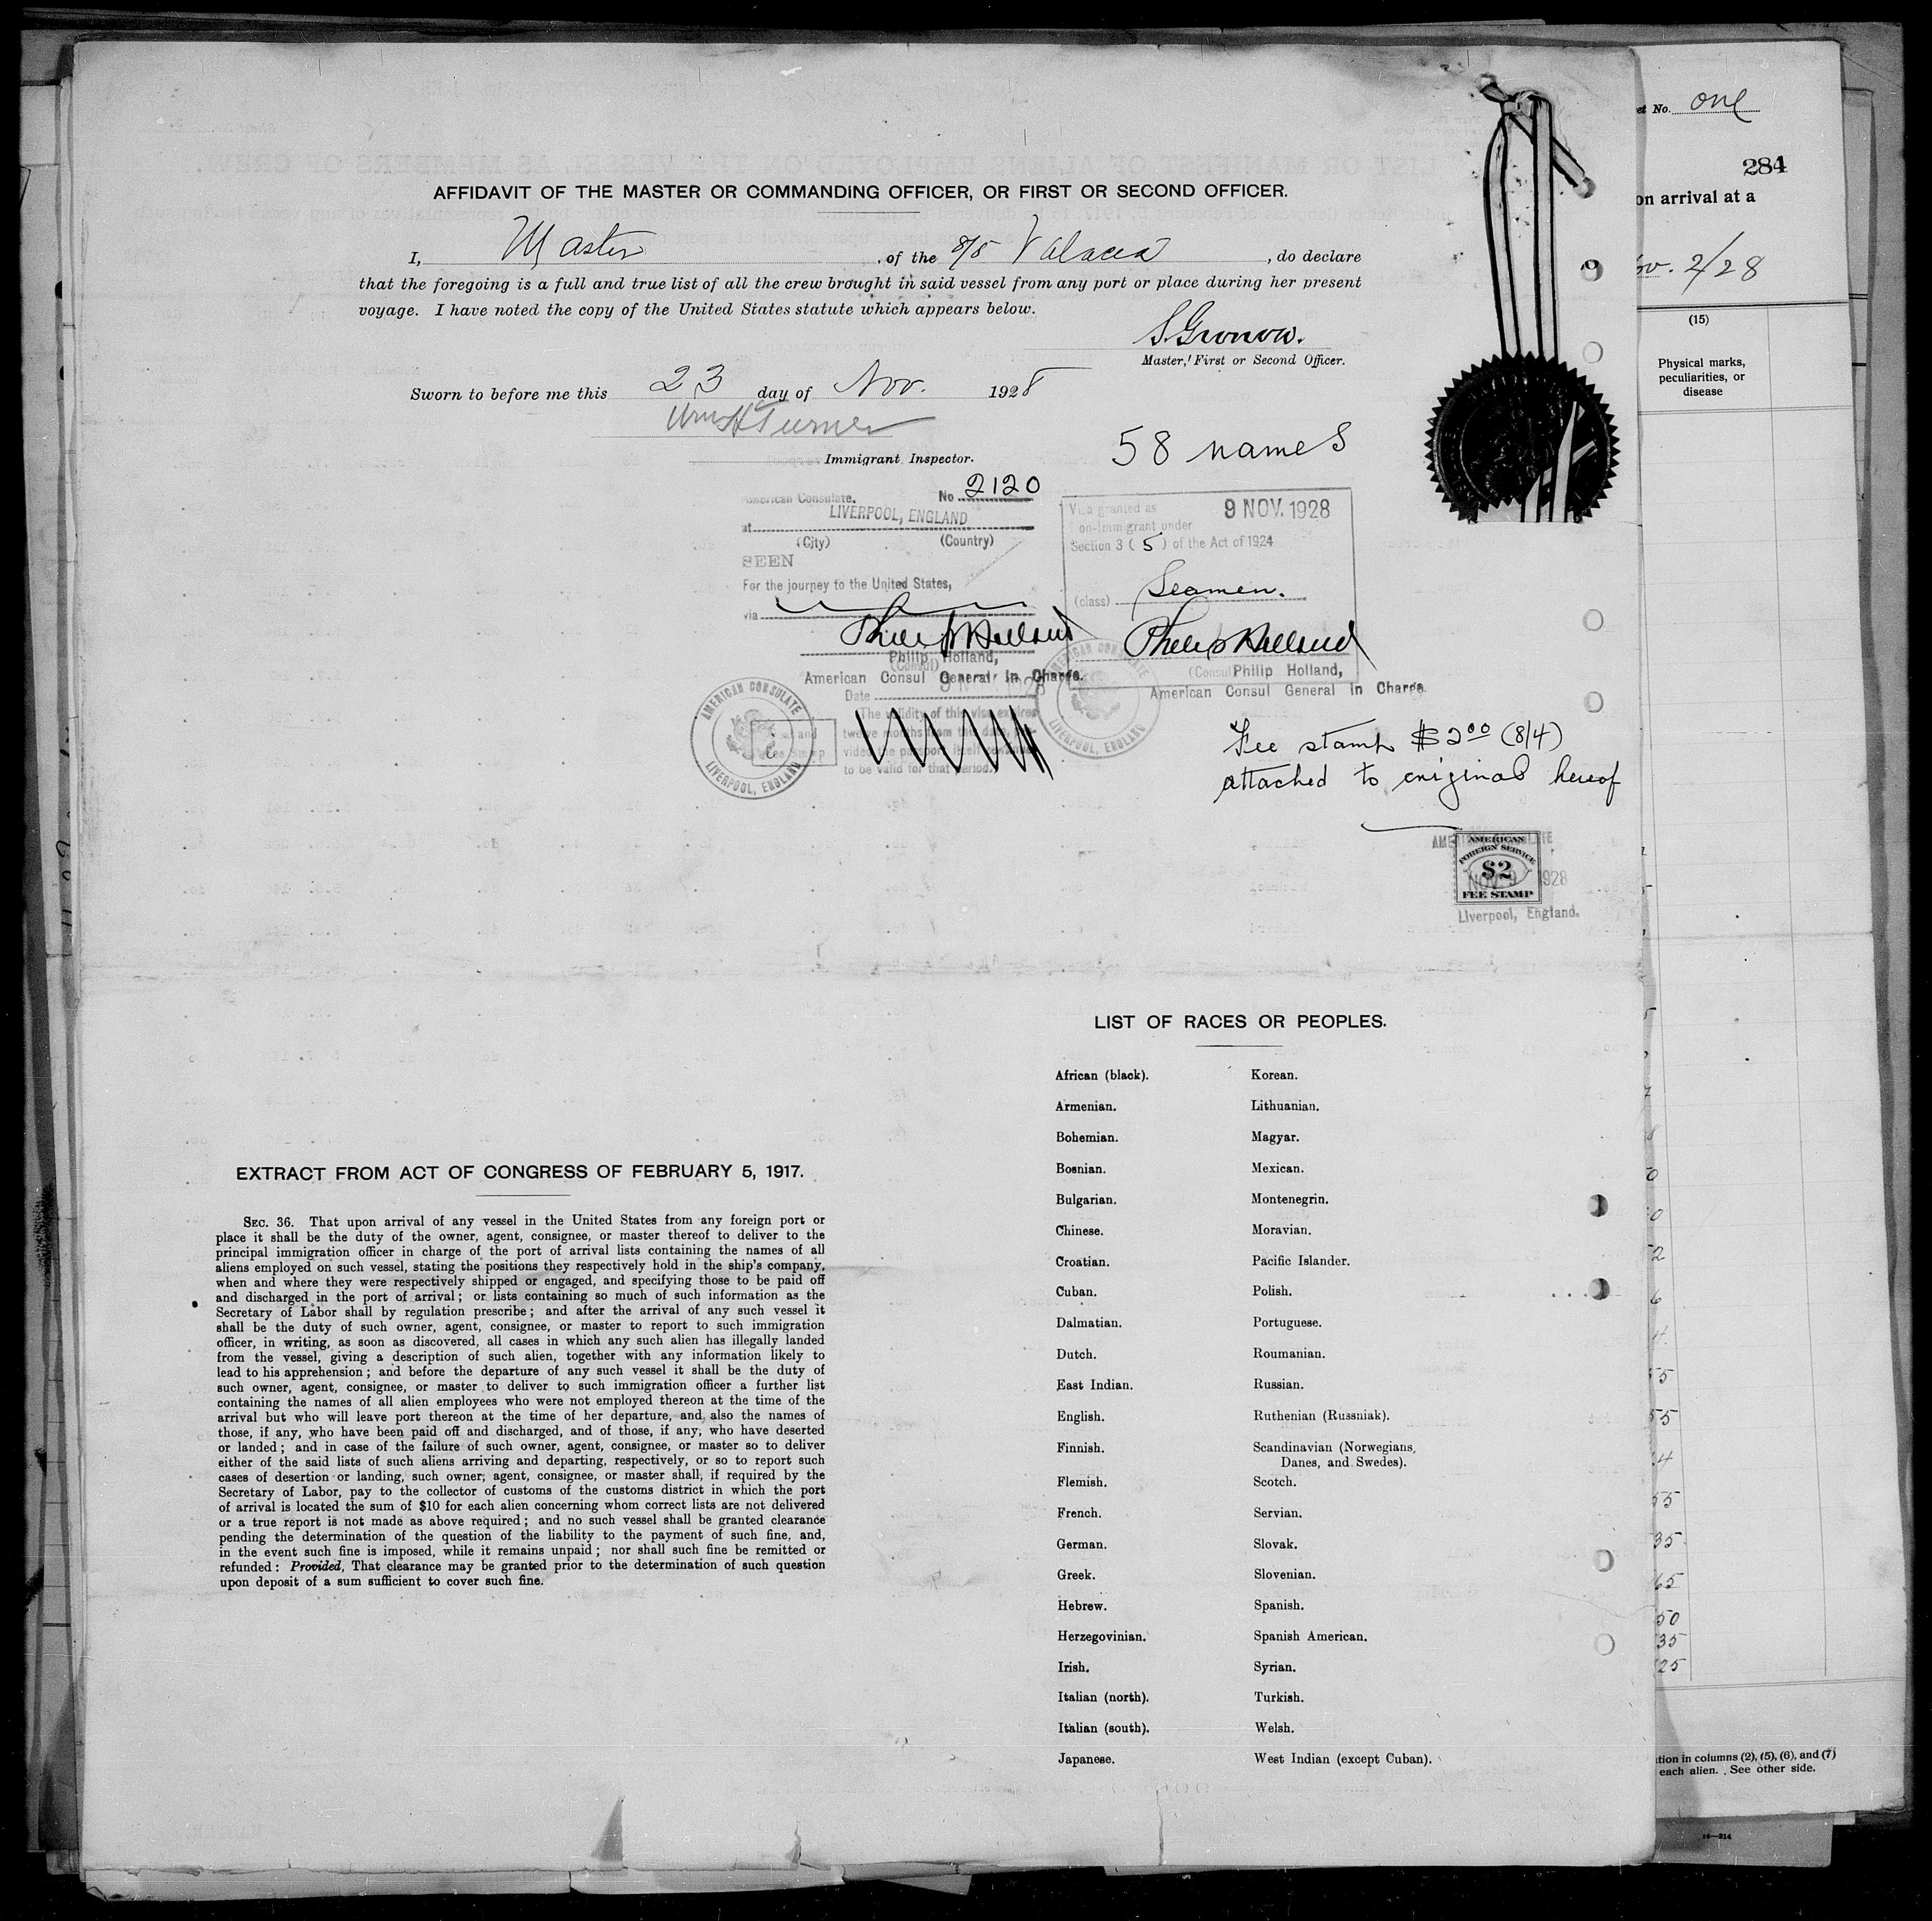 AFFIDAVIT OF THE MASTER OR COMMANDING OFFICER, OR FIRST OR SECOND OFFICER.
I, Master, of the S/S Valacia, do declare
that the foregoing is a full and true list of all the crew brought in said vessel from any port or place during her present
voyage. I have noted the copy of the United States statute which appears below.
S. Gronow.
Master, First or Second Officer.
Sworn to before me this 23 day of Nov. 1928
Wm H Turner
Immigrant Inspector.
58 names
American Consulate. No 2120
at LIVERPOOL, ENGLAND
(City) (Country)
SEEN
For the journey to the United States,
via
Philip Holland
Philip Holland,
(Consul)
American Consul General in Charge.
Date 9 NOV. 1928
The validity of this visa expires
twelve months from the date, pro-
vided the passport itself
to be valid for that period.
AMERICAN CONSULATE
LIVERPOOL, ENGLAND
Visa granted as 9 NOV. 1928
on-Immigrant under
Section 3 (5) of the Act of 1924
(class) Seamen.
Philip Holland
(Consul Philip Holland,
American Consul General in Charge.
AMERICAN CONSULATE
LIVERPOOL, ENGLAND
Fee stamp $2.00 (8/4)
attached to original hereof
AMERICAN
FOREIGN SERVICE
$2
NOV 9 1928
FEE STAMP
Liverpool, England.
EXTRACT FROM ACT OF CONGRESS OF FEBRUARY 5, 1917.
SEC. 36. That upon arrival of any vessel in the United States from any foreign port or
place it shall be the duty of the owner, agent, consignee, or master thereof to deliver to the
principal immigration officer in charge of the port of arrival lists containing the names of all
aliens employed on such vessel, stating the positions they respectively hold in the ship's company,
when and where they were respectively shipped or engaged, and specifying those to be paid off
and discharged in the port of arrival; or lists containing so much of such information as the
Secretary of Labor shall by regulation prescribe; and after the arrival of any such vessel it
shall be the duty of such owner, agent, consignee, or master to report to such immigration
officer, in writing, as soon as discovered, all cases in which any such alien has illegally landed
from the vessel, giving a description of such alien, together with any information likely to
lead to his apprehension; and before the departure of any such vessel it shall be the duty of
such owner, agent, consignee, or master to deliver to such immigration officer a further list
containing the names of all alien employees who were not employed thereon at the time of the
arrival but who will leave port thereon at the time of her departure, and also the names of
those, if any, who have been paid off and discharged, and of those, if any, who have deserted
or landed; and in case of the failure of such owner, agent, consignee, or master so to deliver
either of the said lists of such aliens arriving and departing, respectively, or so to report such
cases of desertion or landing, such owner, agent, consignee, or master shall, if required by the
Secretary of Labor, pay to the collector of customs of the customs district in which the port
of arrival is located the sum of $10 for each alien concerning whom correct lists are not delivered
or a true report is not made as above required; and no such vessel shall be granted clearance
pending the determination of the question of the liability to the payment of such fine, and,
in the event such fine is imposed, while it remains unpaid; nor shall such fine be remitted or
refunded: Provided, That clearance may be granted prior to the determination of such question
upon deposit of a sum sufficient to cover such fine.
LIST OF RACES OR PEOPLES.
African (black). Korean.
Armenian. Lithuanian.
Bohemian. Magyar.
Bosnian. Mexican.
Bulgarian. Montenegrin.
Chinese. Moravian.
Croatian. Pacific Islander.
Cuban. Polish.
Dalmatian. Portuguese.
Dutch. Roumanian.
East Indian. Russian.
English. Ruthenian (Russniak).
Finnish. Scandinavian (Norwegians,
Danes, and Swedes).
Flemish. Scotch.
French. Servian.
German. Slovak.
Greek. Slovenian.
Hebrew. Spanish.
Herzegovinian. Spanish American.
Irish. Syrian.
Italian (north). Turkish.
Italian (south). Welsh.
Japanese. West Indian (except Cuban).
et No. one
284
on arrival at a
ov. 2/28
(15)
Physical marks,
peculiarities, or
disease
55
55
35
65
50
35
25
tion in columns (2), (5), (6), and (7)
each alien. See other side.
14—214